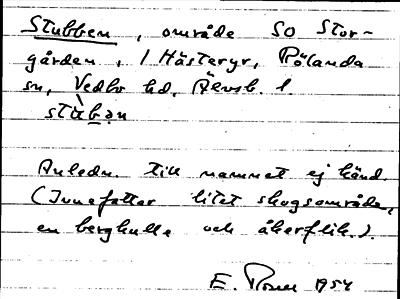 Stubben, område SO Stor-
gården, i Hästeryr, Rölanda
sn, Vedbo hd, Älvsb. l.
stùbən
Anledn. till namnet ej känd.
(Innefattar litet skogsområde,
en bergkulle och åkerflik.).
E. 1954